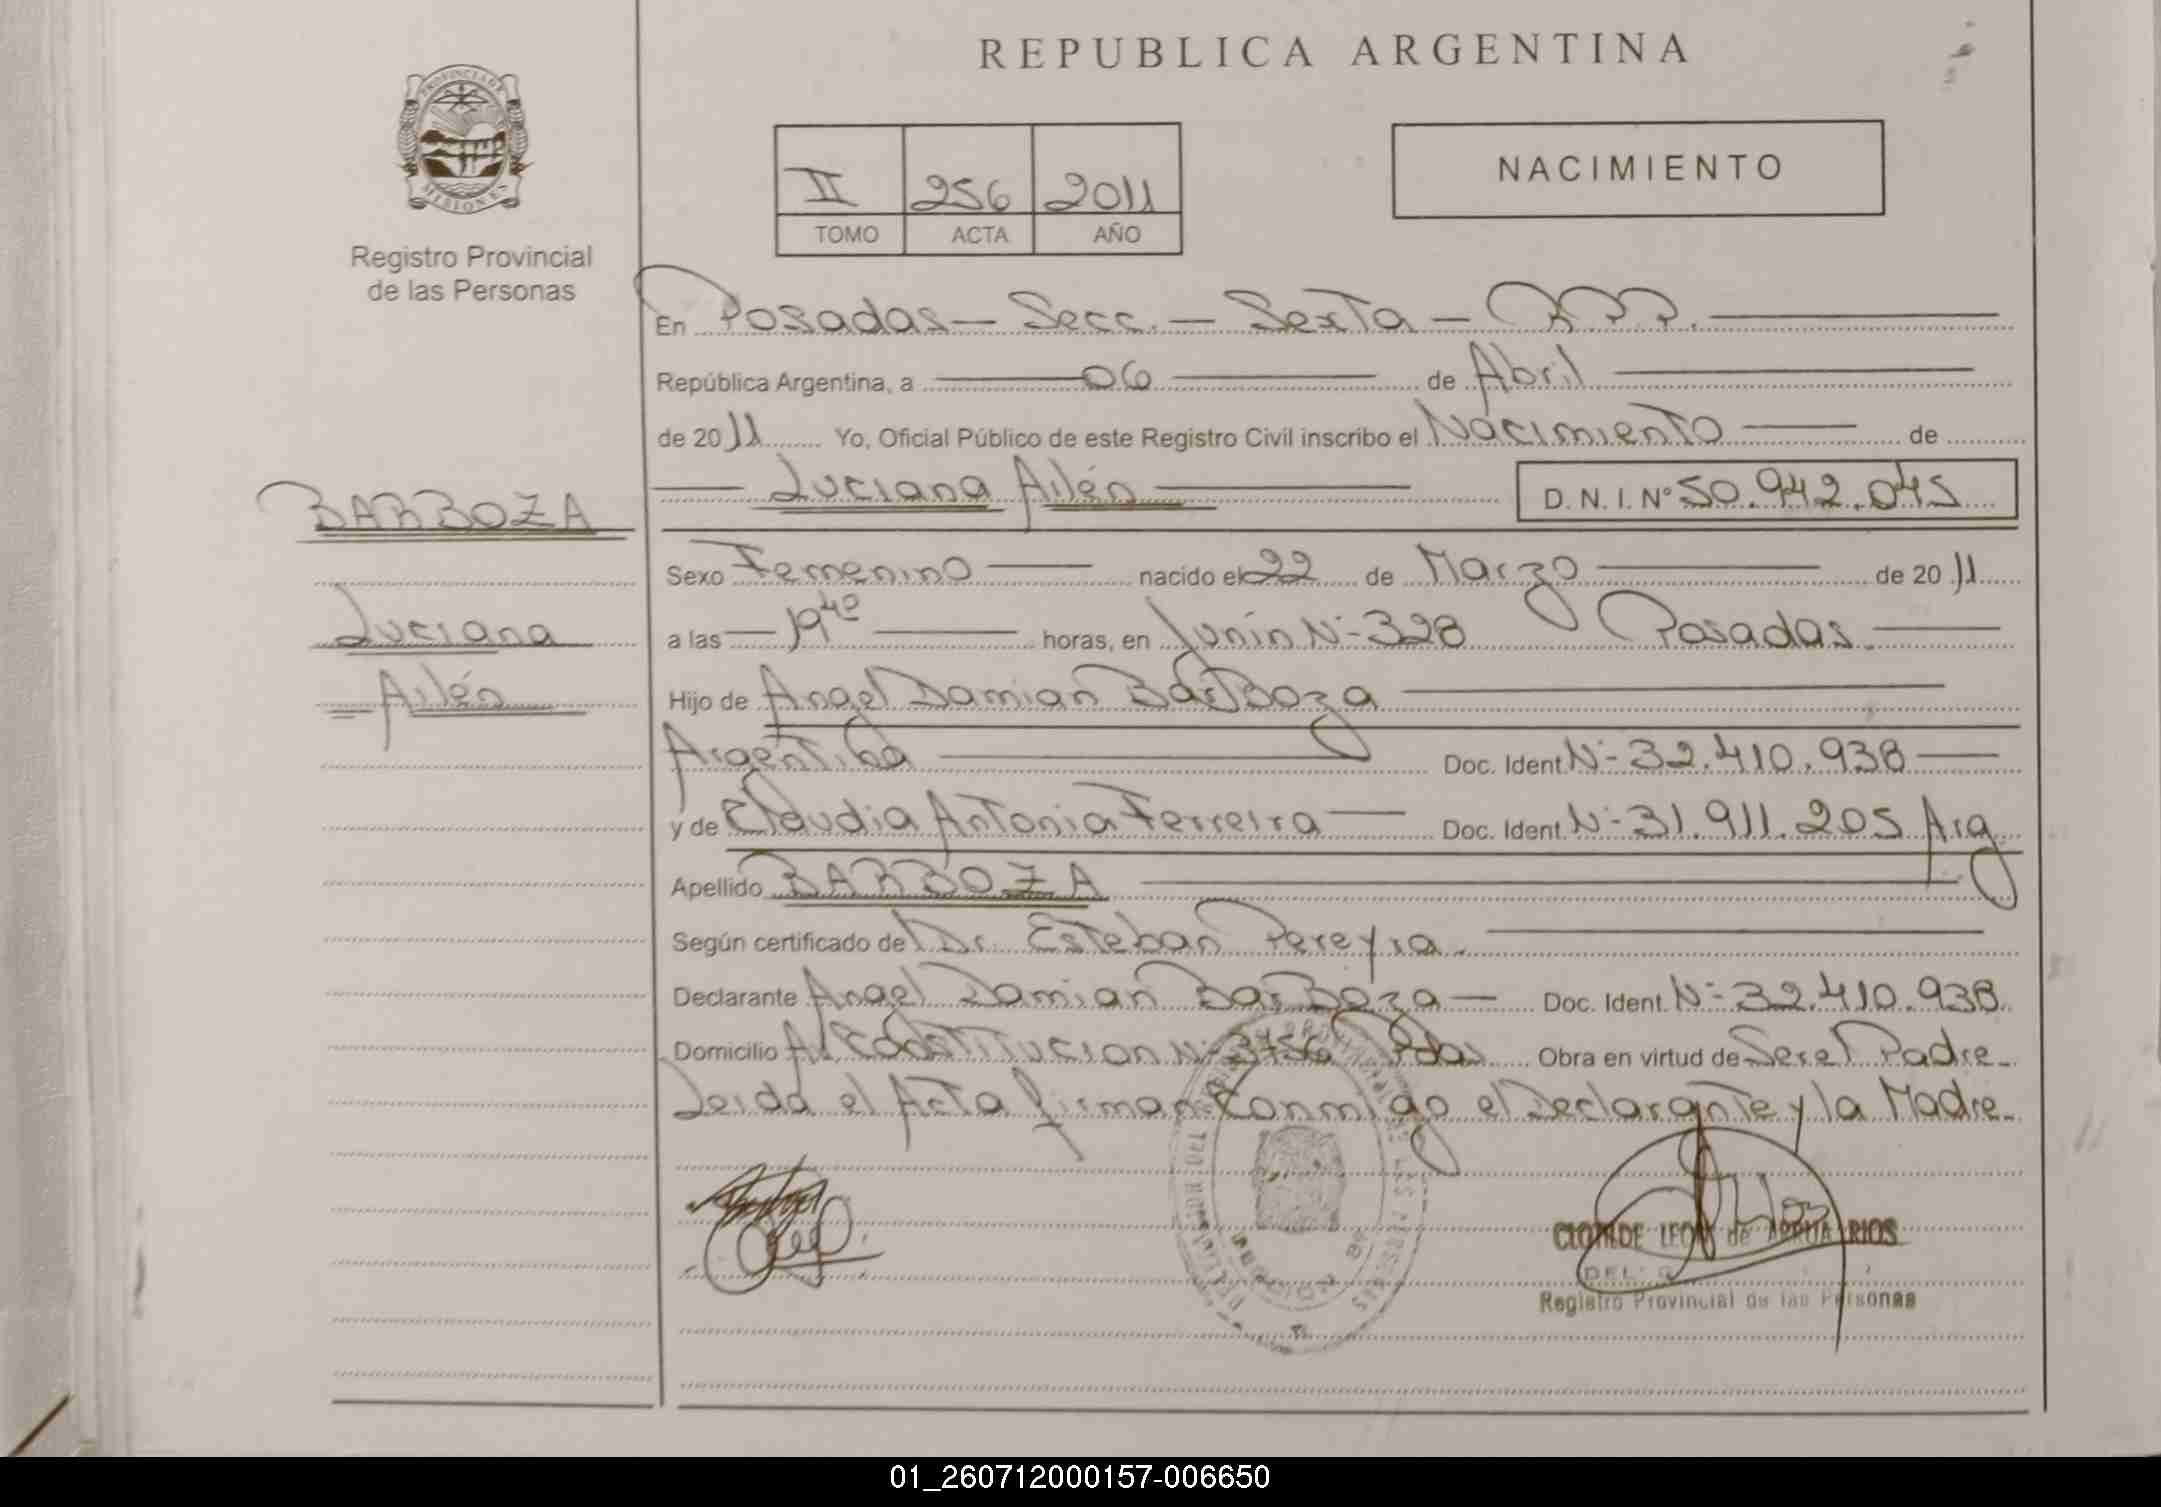 REPUBLICA ARGENTINA
PROVINCIA DE
MISIONES
Registro Provincial
de las Personas
II 256 2011
TOMO ACTA AÑO
NACIMIENTO
En Posadas - Secc. - Sexta - R.P.P.
República Argentina, a 06 de Abril
de 2011 Yo, Oficial Público de este Registro Civil inscribo el Nacimiento de
Luciana Ailén D.N.I.Nº 50.942.045
BARBOZA
Luciana
Ailén
Sexo Femenino nacido el 22 de Marzo de 2011
a las 19 40 horas, en Junín Nº 328 Posadas.
Hijo de Angel Damian Barboza
Argentina Doc. Ident. Nº 32.410.938
y de Claudia Antonia Ferreira Doc. Ident. Nº 31.911.205 Arg
Apellido BARBOZA
Según certificado de Dr. Esteban Pereyra.
Declarante Angel Damian Barboza Doc. Ident. Nº 32.410.938.
Domicilio Av Constitucion Nº 3756 Pdas Obra en virtud de Ser el Padre
Leida el Acta firman Conmigo el Declarante y la Madre
CLOTILDE LEON de ARRUA RIOS
Registro Provincial de las Personas
01_260712000157-006650